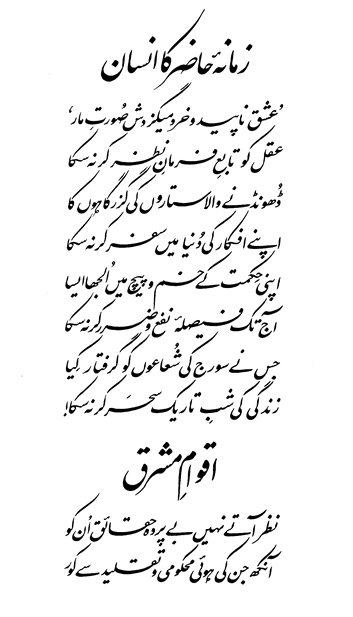 زمانۂ حاضر کا انسان
’عشق ناپید و خرد میگزدش صُورتِ مار‘
عقل کو تابعِ فرمانِ نظر کر نہ سکا
ڈُھونڈنے والا ستاروں کی گزرگاہوں کا
اپنے افکار کی دُنیا میں سفر کر نہ سکا
اپنی حِکمت کے خم و پیچ میں اُلجھا ایسا
آج تک فیصلۂ نفع و ضرر کر نہ سکا
جس نے سورج کی شُعاعوں کو گرفتار کِیا
زندگی کی شبِ تاریک سحَر کر نہ سکا!
اقوامِ مشرق
نظر آتے نہیں بے پردہ حقائق اُن کو
آنکھ جن کی ہُوئی محکومی و تقلید سے کُور